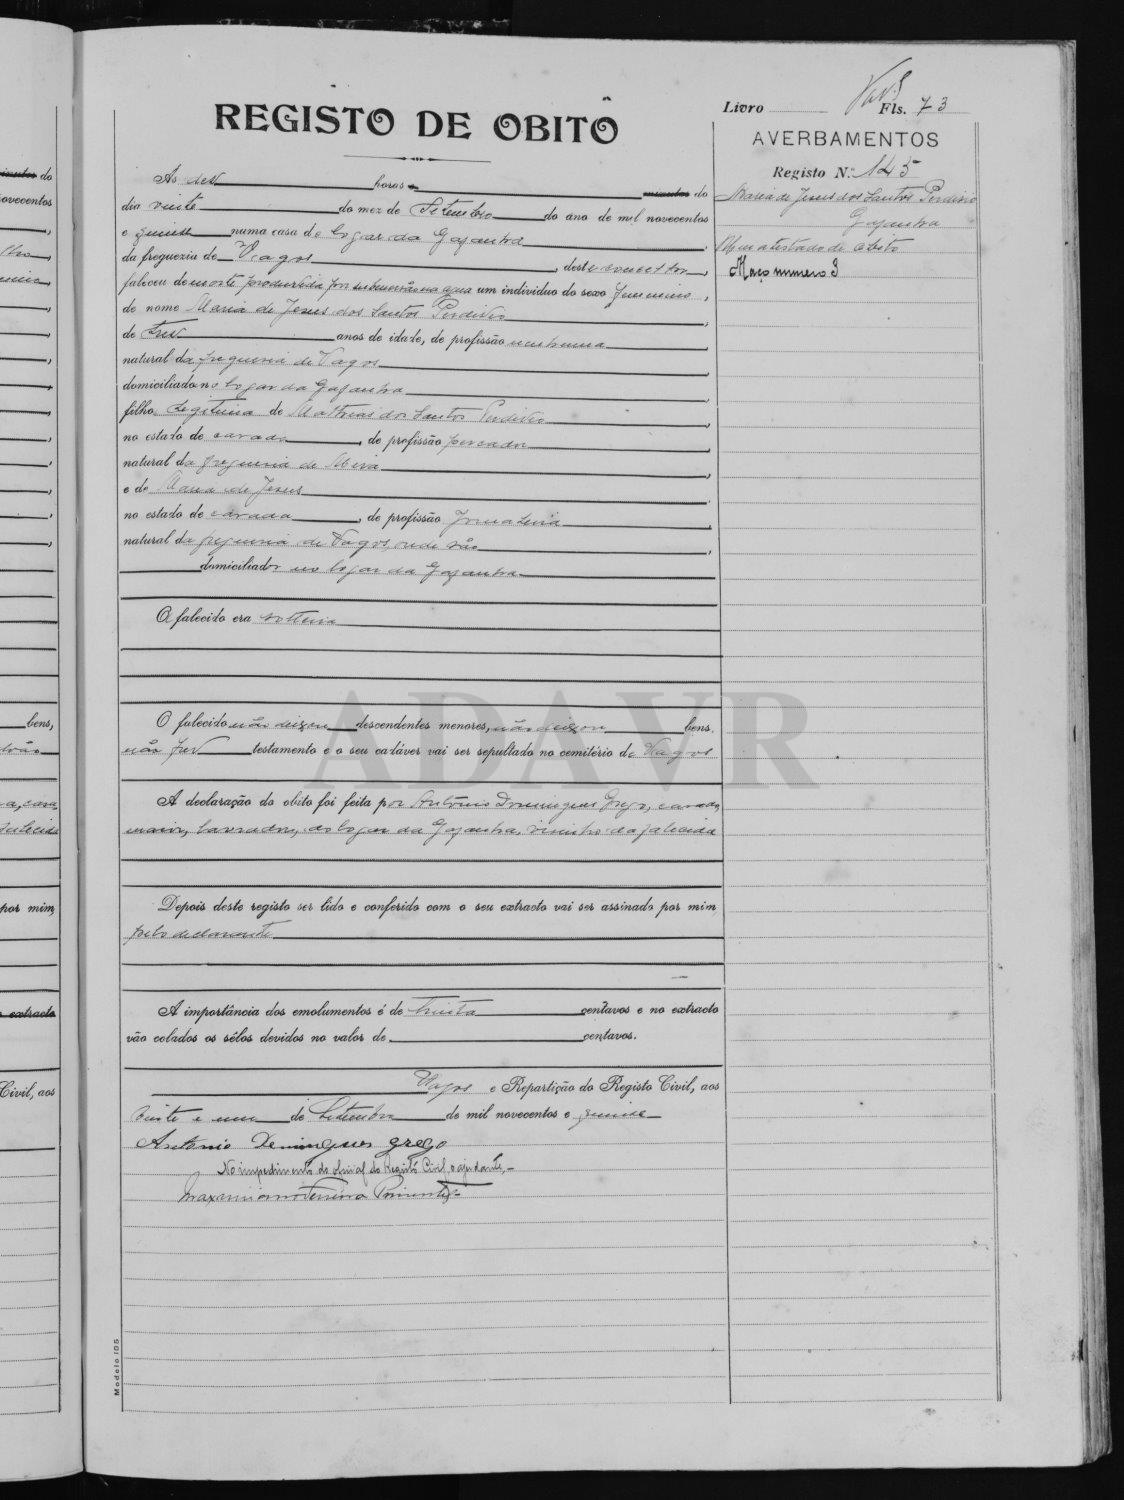 Livro Fls. 73
REGISTO DE OBITO
AVERBAMENTOS
Registo N.º 145
Maria de Jesus dos Santos Perdisio
Gafanha
Um atestado de obito
Maço numero 3
Ás dez horas minutos do
dia vinte do mez de Setembro do ano de mil novecentos
e quinze numa casa do logar da Gafanha
da freguezia de Vagos, deste concelho,
faleceu de morte produzida por submersão na agua um individuo do sexo femenino,
de nome Maria de Jesus dos Santos Perdisio,
de tres anos de idade, de profissão nenhuma,
natural da freguesia de Vagos,
domiciliada no logar da Gafanha,
filha legitima de Mathias dos Santos Perdisio,
no estado de casado, de profissão pescador,
natural da freguesia de Mira,
e de Maria de Jesus
no estado de casada, de profissão jornaleira,
natural da freguesia de Vagos, onde são,
domiciliados no logar da Gafanha
O falecido era solteira
O falecido não deixou descendentes menores, não deixou bens,
não fez testamento e o seu cadáver vai ser sepultado no cemitério de Vagos
A declaração do obito foi feita por António Domingues Grego, casado,
maior, lavrador, do logar da Gafanha, visinho da falecida
Depois deste registo ser lido e conferido com o seu extracto vai ser assinado por mim
pelo declarante
A importância dos emolumentos é de trinta centavos e no extracto
vão colados os sêlos devidos no valor de centavos.
Vagos e Repartição do Registo Civil, aos
vinte e um de Setembro de mil novecentos e quinze
Antonio Domingues grego
No impedimento do oficial do Registo Civil o ajudante,
Maximiano Ferreira Pimentel
Modelo 105
ADAVR
minutos do
novecentos
bens,
por mim,
extracto
Civil, aos